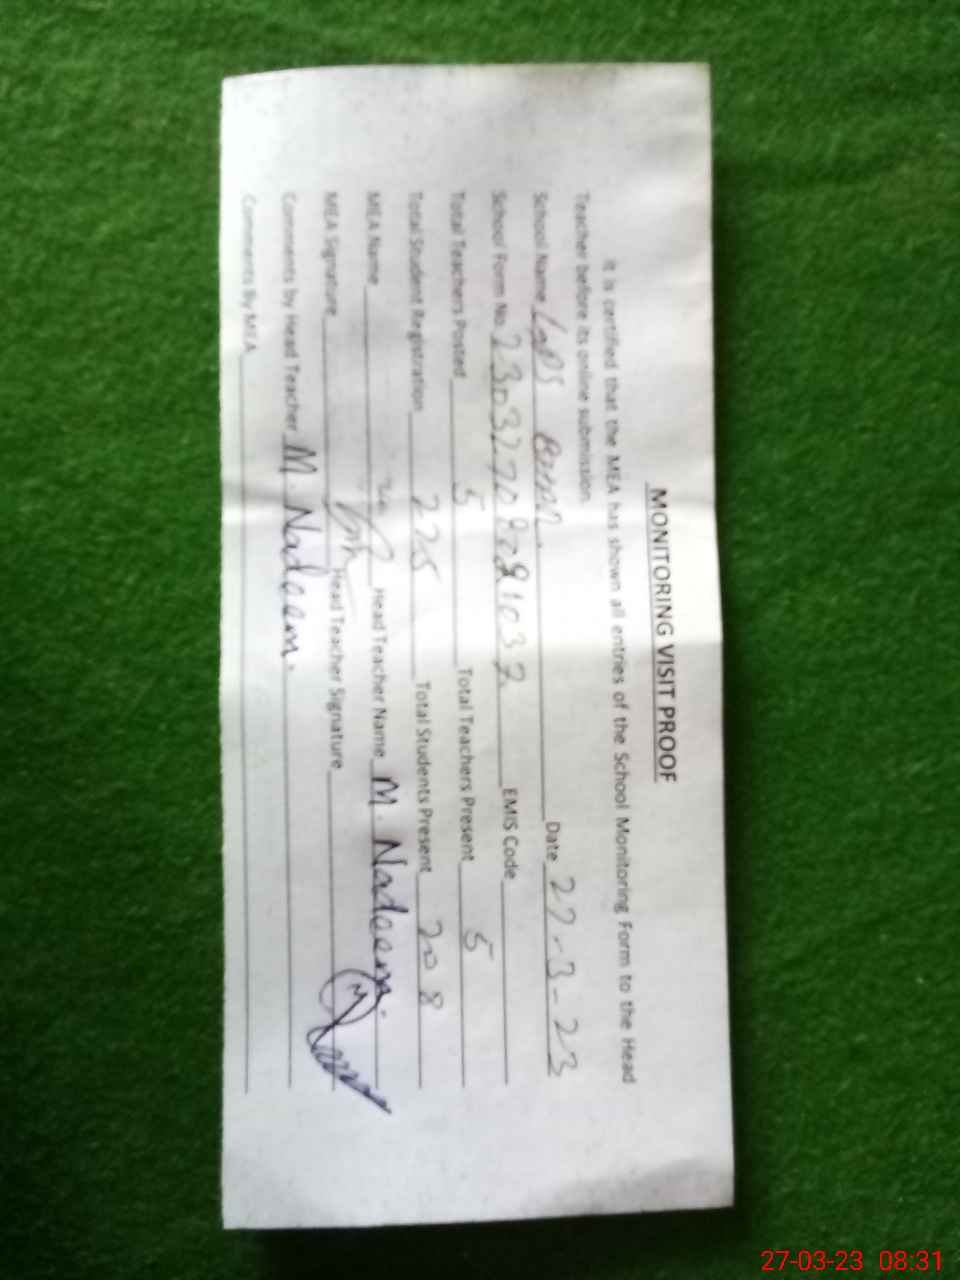 MONITORING VISIT PROOF
It is certified that the MEA has shown all entries of the School Monitoring Form to the Head
Teacher before its online submission.
School Name Date 27-3-23
School Form No. EMIS Code
Total Teachers Posted 5 Total Teachers Present 5
Total Student Registration 225 Total Students Present 208
MEA Name Head Teacher Name M. Nadeem.
MEA Signature Head Teacher Signature
Comments by Head Teacher M. Nadeem.
Comments By MEA
27-03-23 08:31